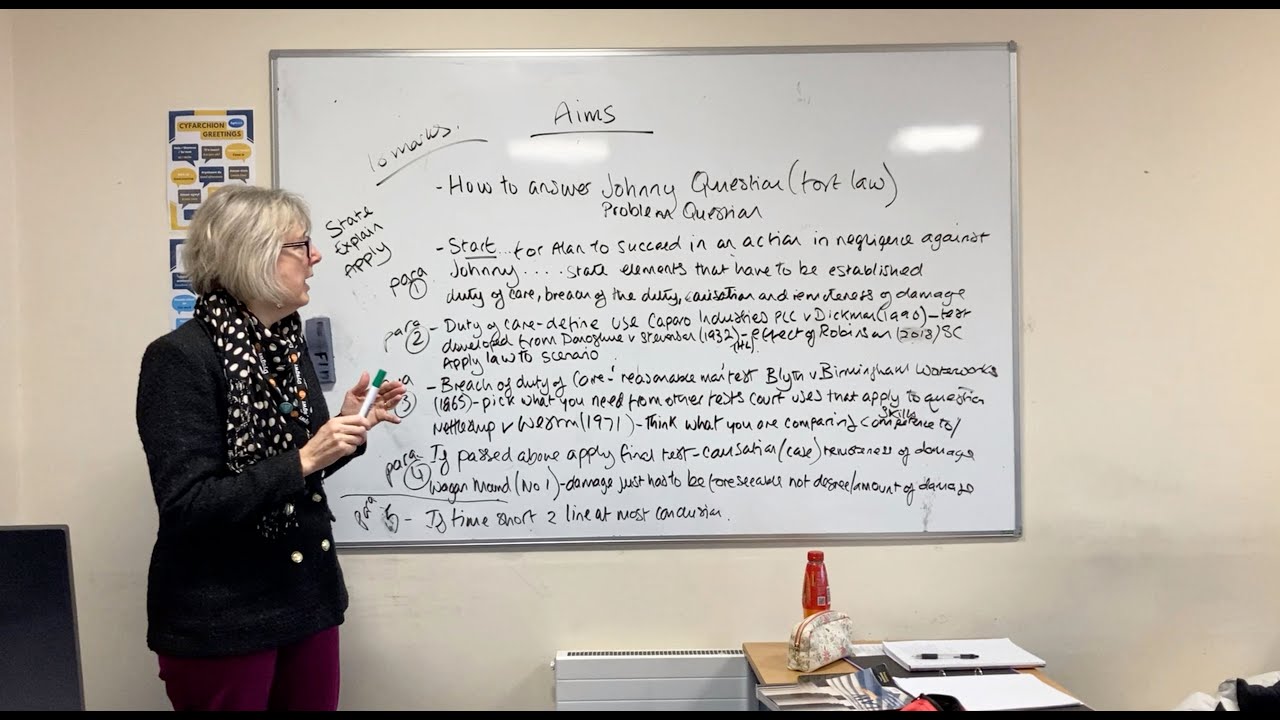 CYFARCHION
GREETINGS
Aims
10 marks.
- How to answer Johnny Question (tort law)
Problem Question
State
Explain
Apply
para 1
- Start ... for Alan to succeed in an action in negligence against
Johnny .... state elements that have to be established
duty of care, breach of the duty, causation and remoteness of damage
para 2
- Duty of care - define use Caparo Industries PLC v Dickman (1990) - test
developed from Donoghue v Stevenson (1932) - effect of Robinson (2018) SC
(HL).
Apply law to scenario.
3
- Breach of duty of care - 'reasonable man test Blyth v Birmingham Waterworks
(1865) - pick what you need from other tests court uses that apply to question
skills
Nettleship v Weston (1971) - Think what you are comparing competence to/
para 4
- If passed above apply final test - causation (case) remoteness of damage
Wagon Mound (No 1) - damage just has to be foreseeable not degree/amount of damage
para 5
- If time short 2 line at most conclusion.